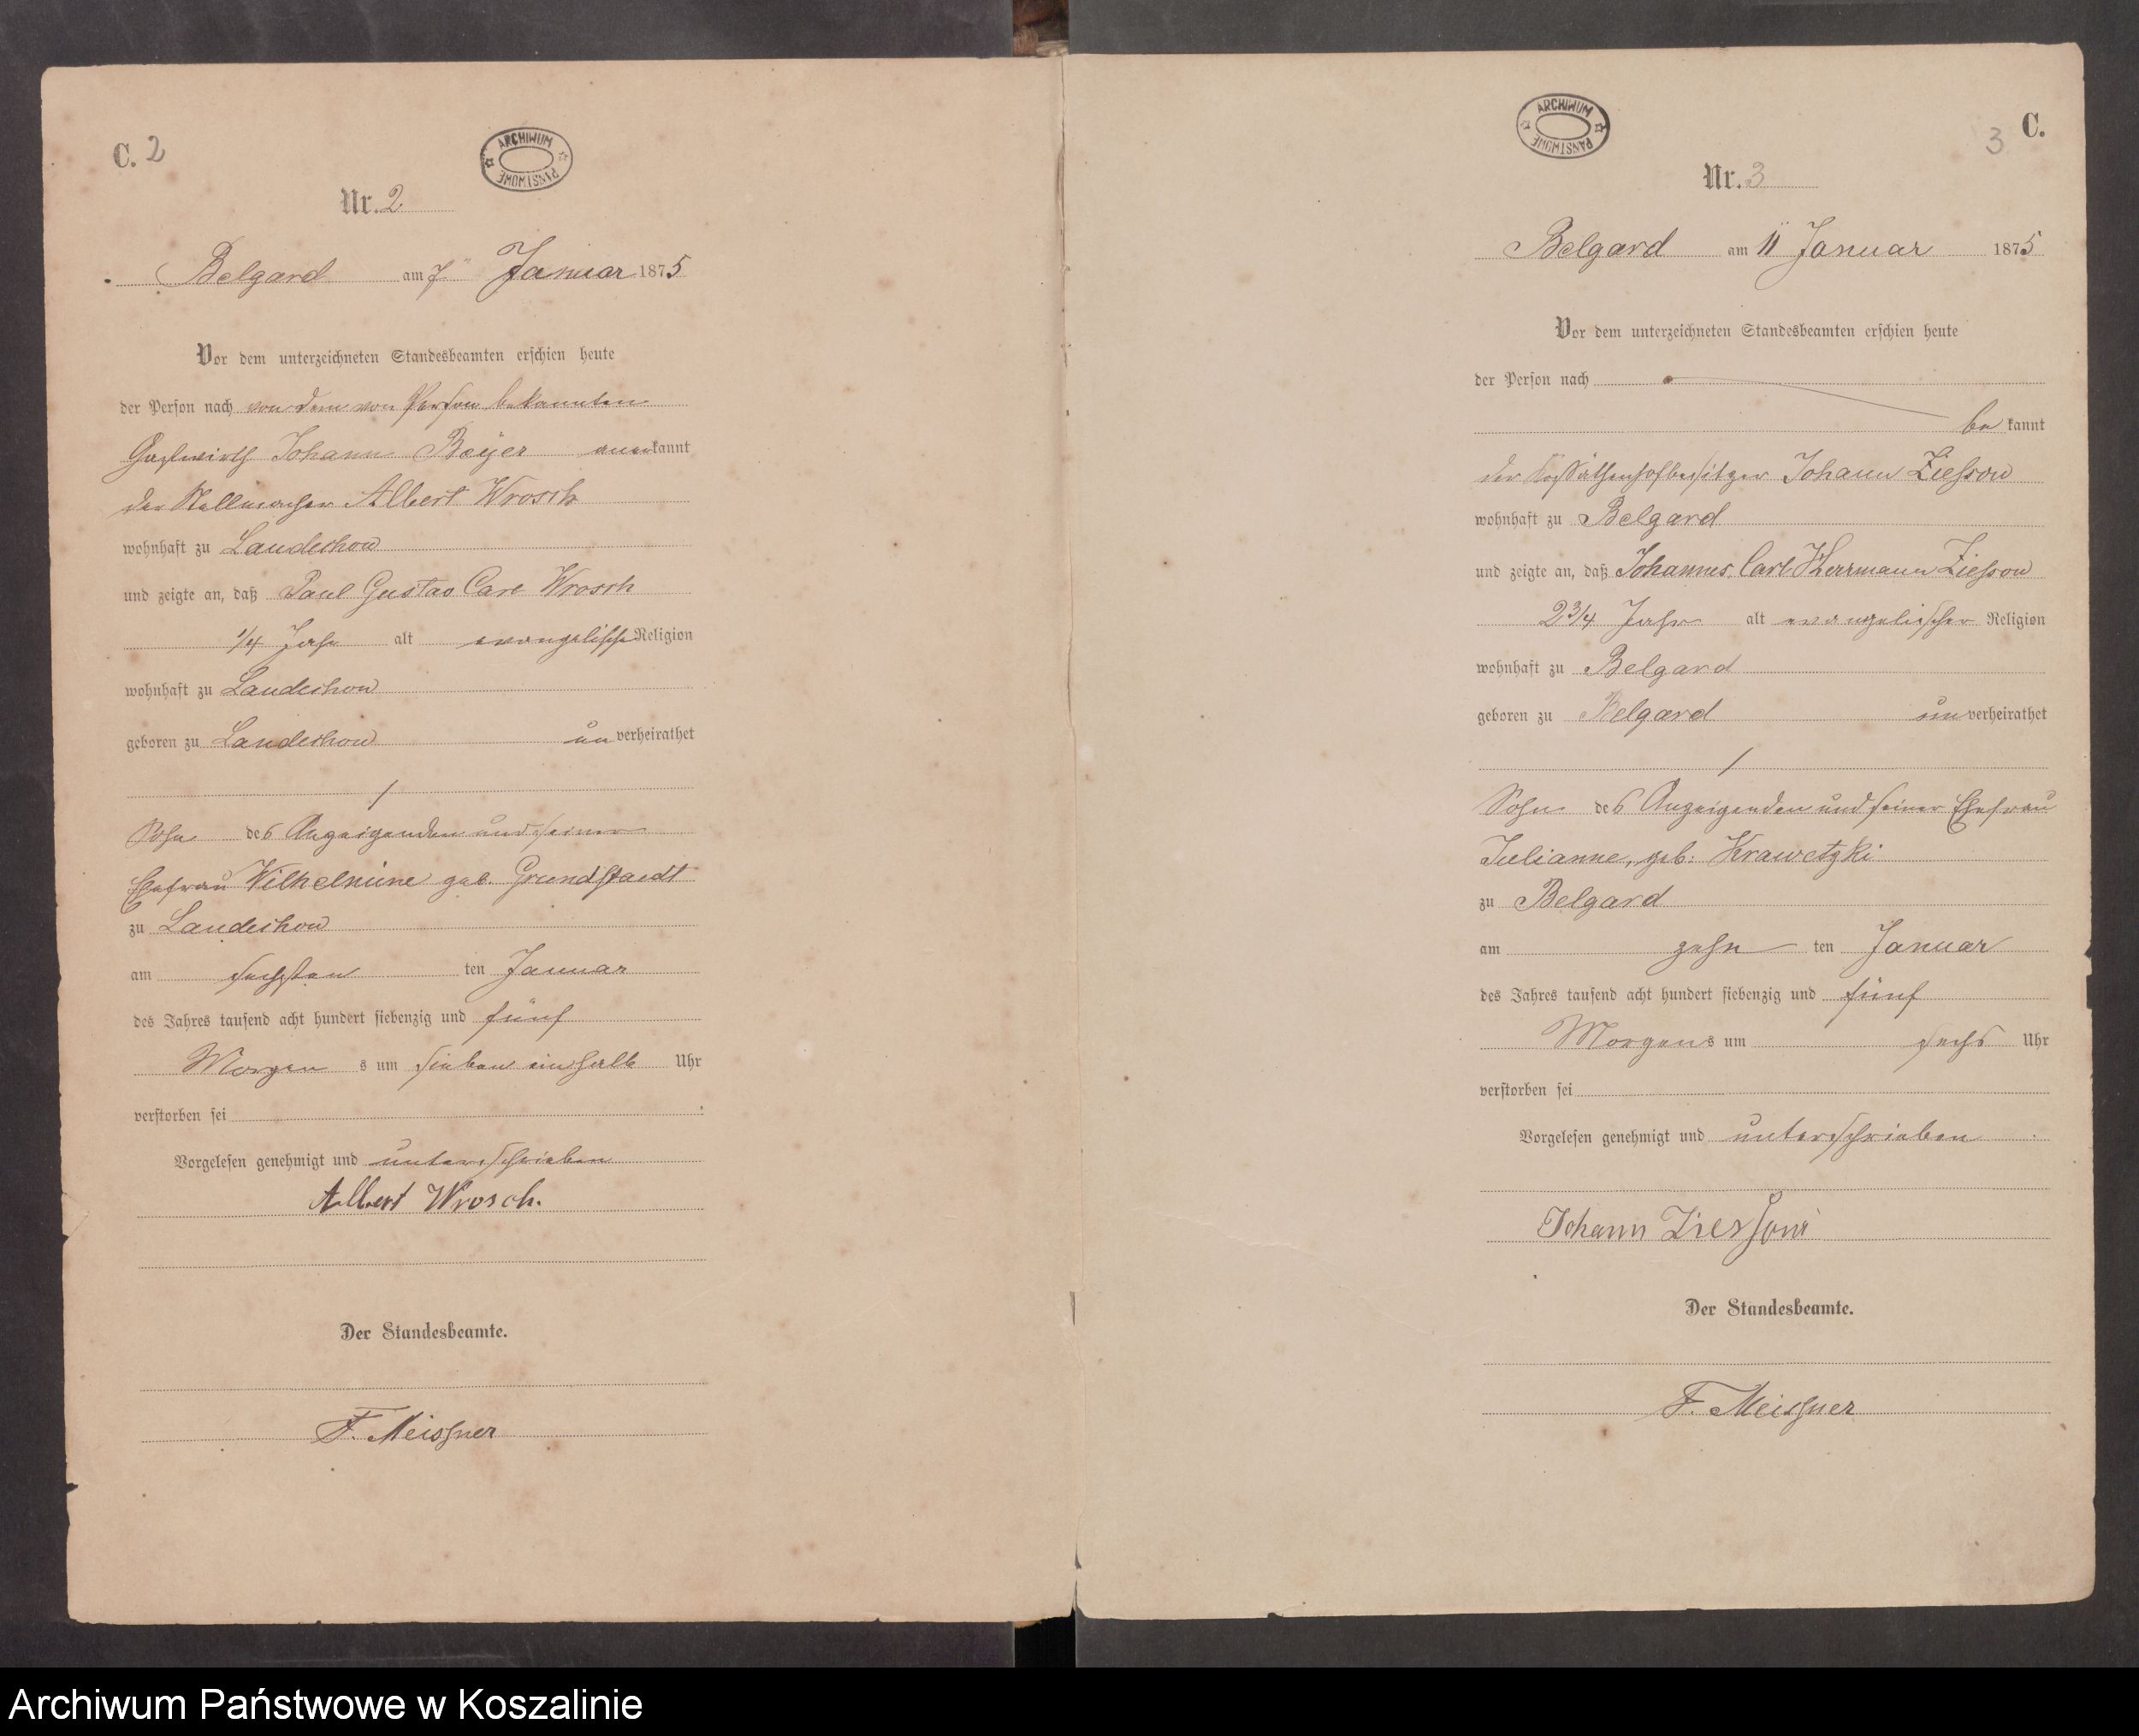 C. 2
ARCHIWUM PAŃSTWOWE
Nr. 2
Belgard am 7" Januar 1875
Vor dem unterzeichneten Standesbeamten erschien heute
der Person nach von dem von Person bekannten
Gastwirth Johann Beyer anerkannt
der Stellmacher Albert Wrosch
wohnhaft zu Landechow
und zeigte an, daß Paul Gustav Carl Wrosch
1/4 Jahr alt evangelischer Religion
wohnhaft zu Landechow
geboren zu Landechow unverheirathet
/
Sohn des Anzeigenden und seiner
Ehefrau Wilhelmine geb. Grundstaedt
zu Landechow
am sechsten ten Januar
des Jahres tausend acht hundert siebenzig und fünf
Morgen s um sieben ein halb Uhr
verstorben sei
Vorgelesen genehmigt und unterschrieben
Albert Wrosch.
Der Standesbeamte.
F. Meissner
3 C.
ARCHIWUM PAŃSTWOWE
Nr. 3
Belgard am 11 Januar 1875
Vor dem unterzeichneten Standesbeamten erschien heute
der Person nach
be kannt
der Kossäthenhofbesitzer Johann Ziesson
wohnhaft zu Belgard
und zeigte an, daß Johannes Carl Herrmann Ziesson
2 3/4 Jahr alt evangelischer Religion
wohnhaft zu Belgard
geboren zu Belgard unverheirathet
/
Sohn des Anzeigenden und seiner Ehefrau
Julianne, geb: Krawetzki
zu Belgard
am zehn ten Januar
des Jahres tausend acht hundert siebenzig und fünf
Morgens um sechs Uhr
verstorben sei
Vorgelesen genehmigt und unterschrieben
Johann
Der Standesbeamte.
F. Meissner
Archiwum Państwowe w Koszalinie